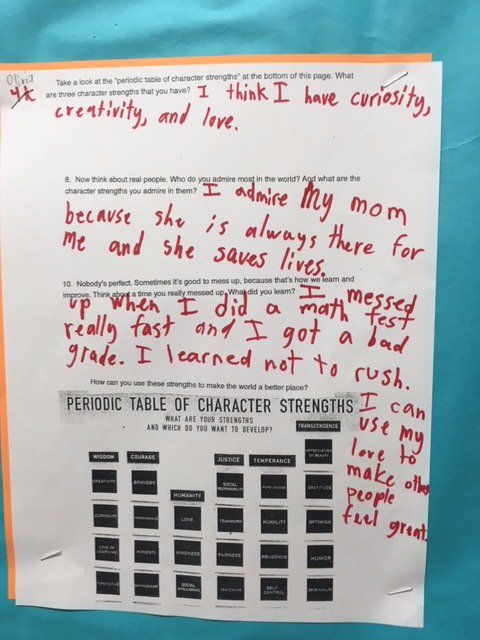 Olivia
4K
Take a look at the "periodic table of character strengths" at the bottom of this page. What
are three character strengths that you have? I think I have curiosity,
creativity, and love.
8. Now think about real people. Who do you admire most in the world? And what are the
character strengths you admire in them? I admire My mom
because she is always there for
Me and she saves lives.
10. Nobody's perfect. Sometimes it's good to mess up, because that's how we learn and
improve. Think about a time you really messed up. What did you learn? I messed
up when I did a math test
really fast and I got a bad
grade. I learned not to rush.
How can you use these strengths to make the world a better place?
I can
use my
love to
make other
people
feel great.
PERIODIC TABLE OF CHARACTER STRENGTHS
WHAT ARE YOUR STRENGTHS
AND WHICH DO YOU WANT TO DEVELOP?
TRANSCENDENCE
WISDOM COURAGE JUSTICE TEMPERANCE
APPRECIATION OF BEAUTY
CREATIVITY BRAVERY SOCIAL RESPONSIBILITY GRATITUDE
HUMANITY
CURIOSITY PERSEVERANCE LOVE TEAMWORK HUMILITY OPTIMISM
LOVE OF LEARNING HONESTY KINDNESS FAIRNESS PRUDENCE HUMOR
PERSPECTIVE ENTHUSIASM SOCIAL INTELLIGENCE LEADERSHIP SELF CONTROL SPIRITUALITY